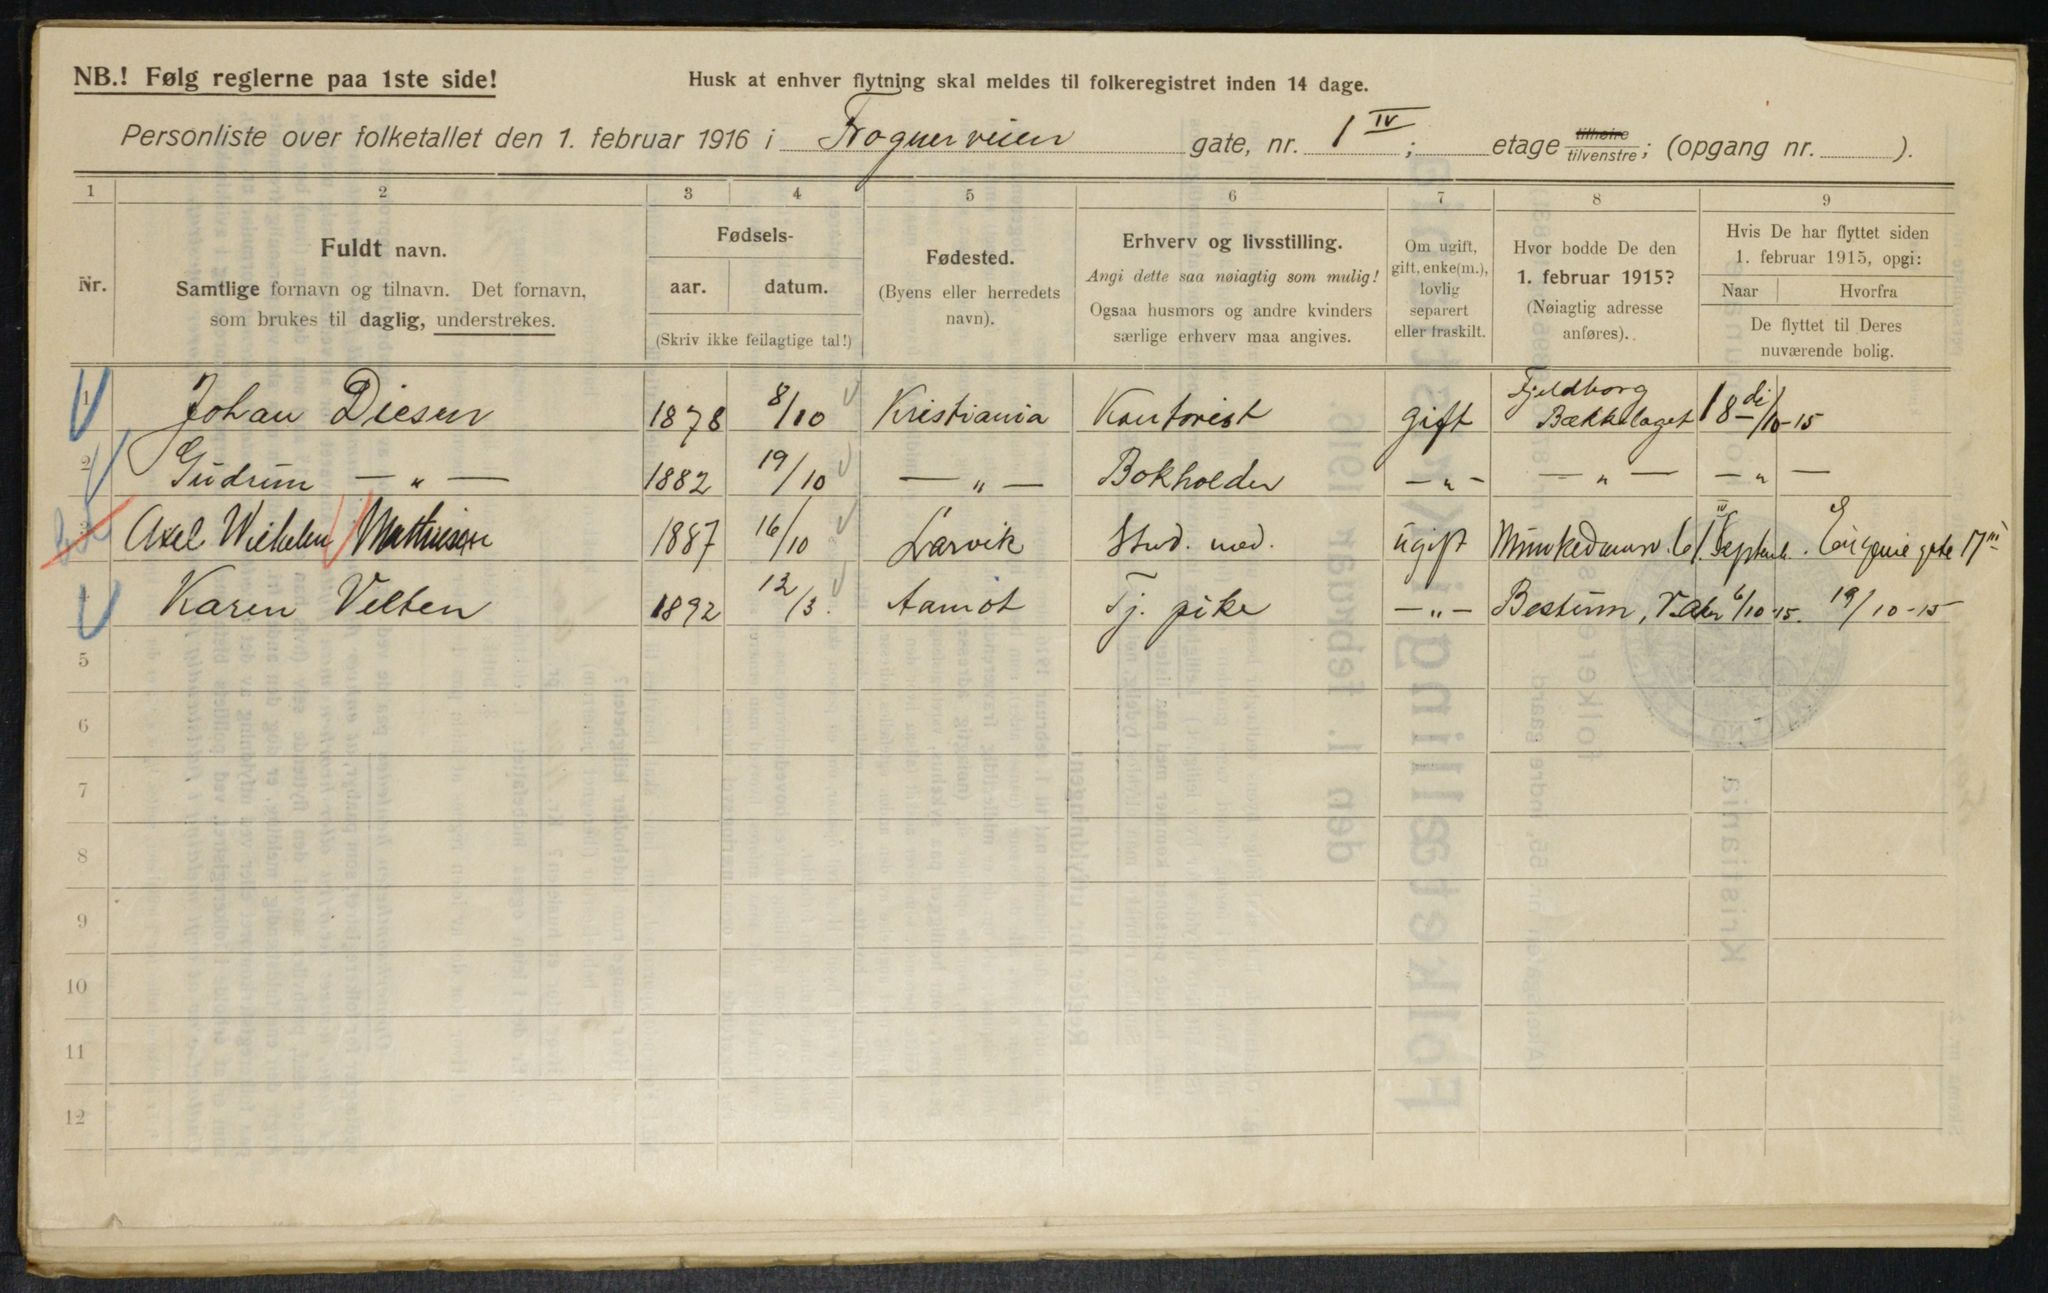 NB.! Følg reglerne paa 1ste side!
Husk at enhver flytning skal meldes til folkeregistret inden 14 dage.
Personliste over folketallet den 1. februar 1916 i Frognerveien gate, nr. 1 IV ; etage tilhøire tilvenstre; (opgang nr. ).
1 2 3 4 5 6 7 8 9
Nr.
Fuldt navn.
Samtlige fornavn og tilnavn. Det fornavn,
som brukes til daglig, understrekes.
Fødsels-
aar. datum.
(Skriv ikke feilagtige tal!)
Fødested.
(Byens eller herredets
navn).
Erhverv og livsstilling.
Angi dette saa nøiagtig som mulig!
Ogsaa husmors og andre kvinders
særlige erhverv maa angives.
Om ugift,
gift, enke(m.),
lovlig
separert
eller fraskilt.
Hvor bodde De den
1. februar 1915?
(Nøiagtig adresse
anføres).
Hvis De har flyttet siden
1. februar 1915, opgi:
Naar Hvorfra
De flyttet til Deres
nuværende bolig.
1 Johan Diesen 1878 8/10 Kristiania Kontorist gift Fjeldborg Bækkelaget 18 di/10-15
2 Gudrun — " — 1882 19/10 — " — Bokholder — " — — " — — " —
3 Axel Wilhelm Mathiesen 1887 16/10 Larvik Stud. med. ugift Munkedamsv. 61 IV Septemb. Eugenie gate 17 III
4 Karen Velten 1892 12/3. Aamot Tj. pike — " — Bestum, V. Aker 6/10-15. 19/10-15
5
6
7
8
9
10
11
12